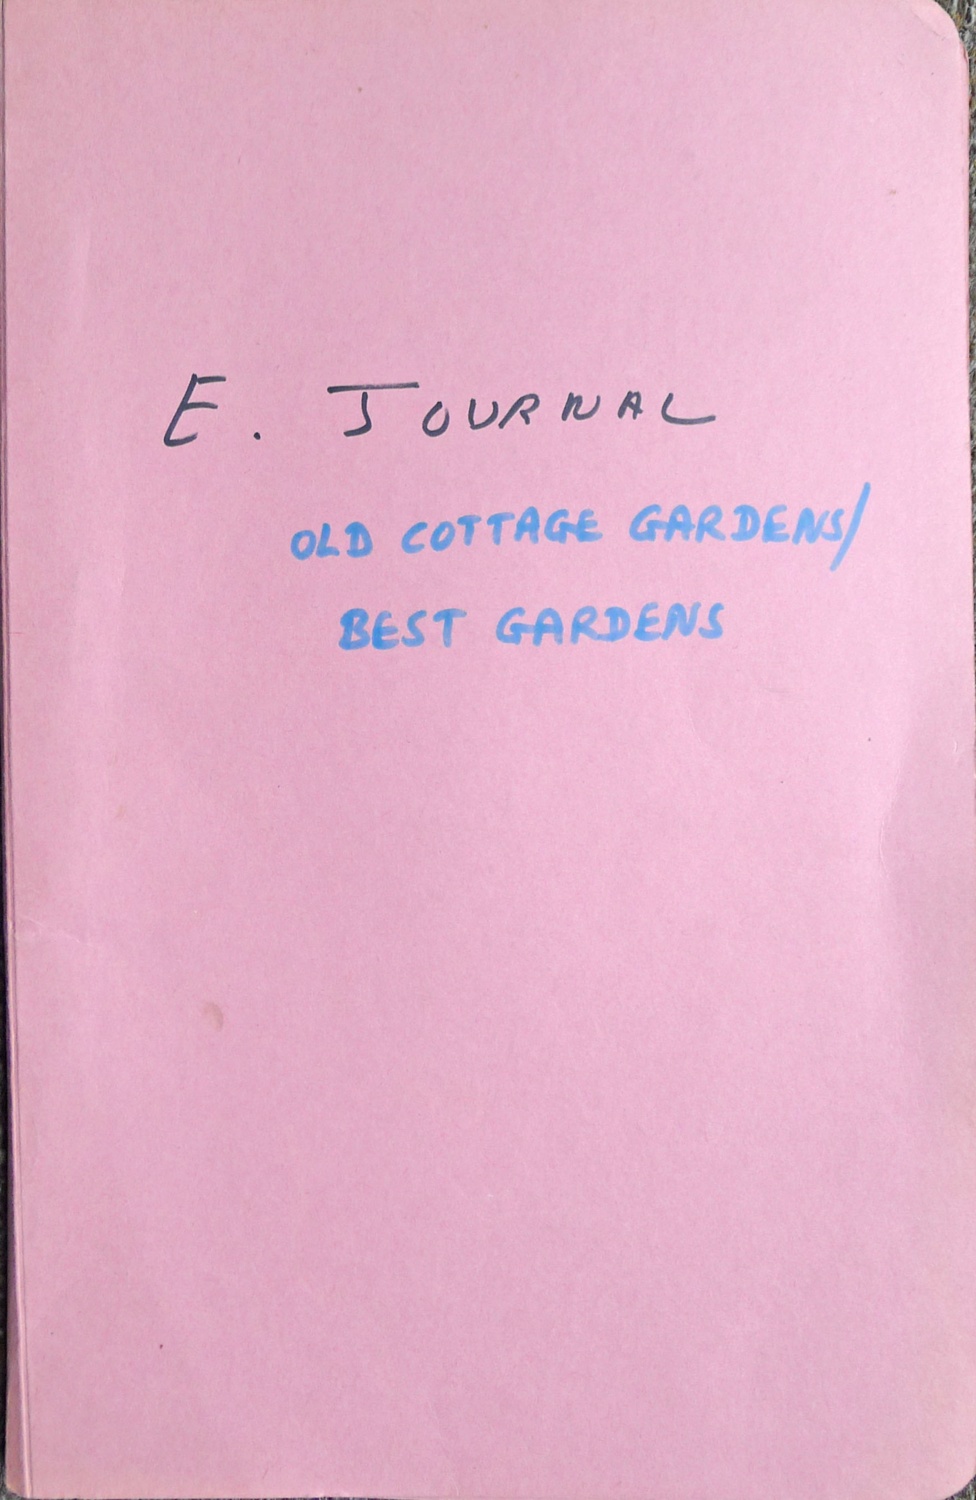 E. JOURNAL
OLD COTTAGE GARDENS/
BEST GARDENS